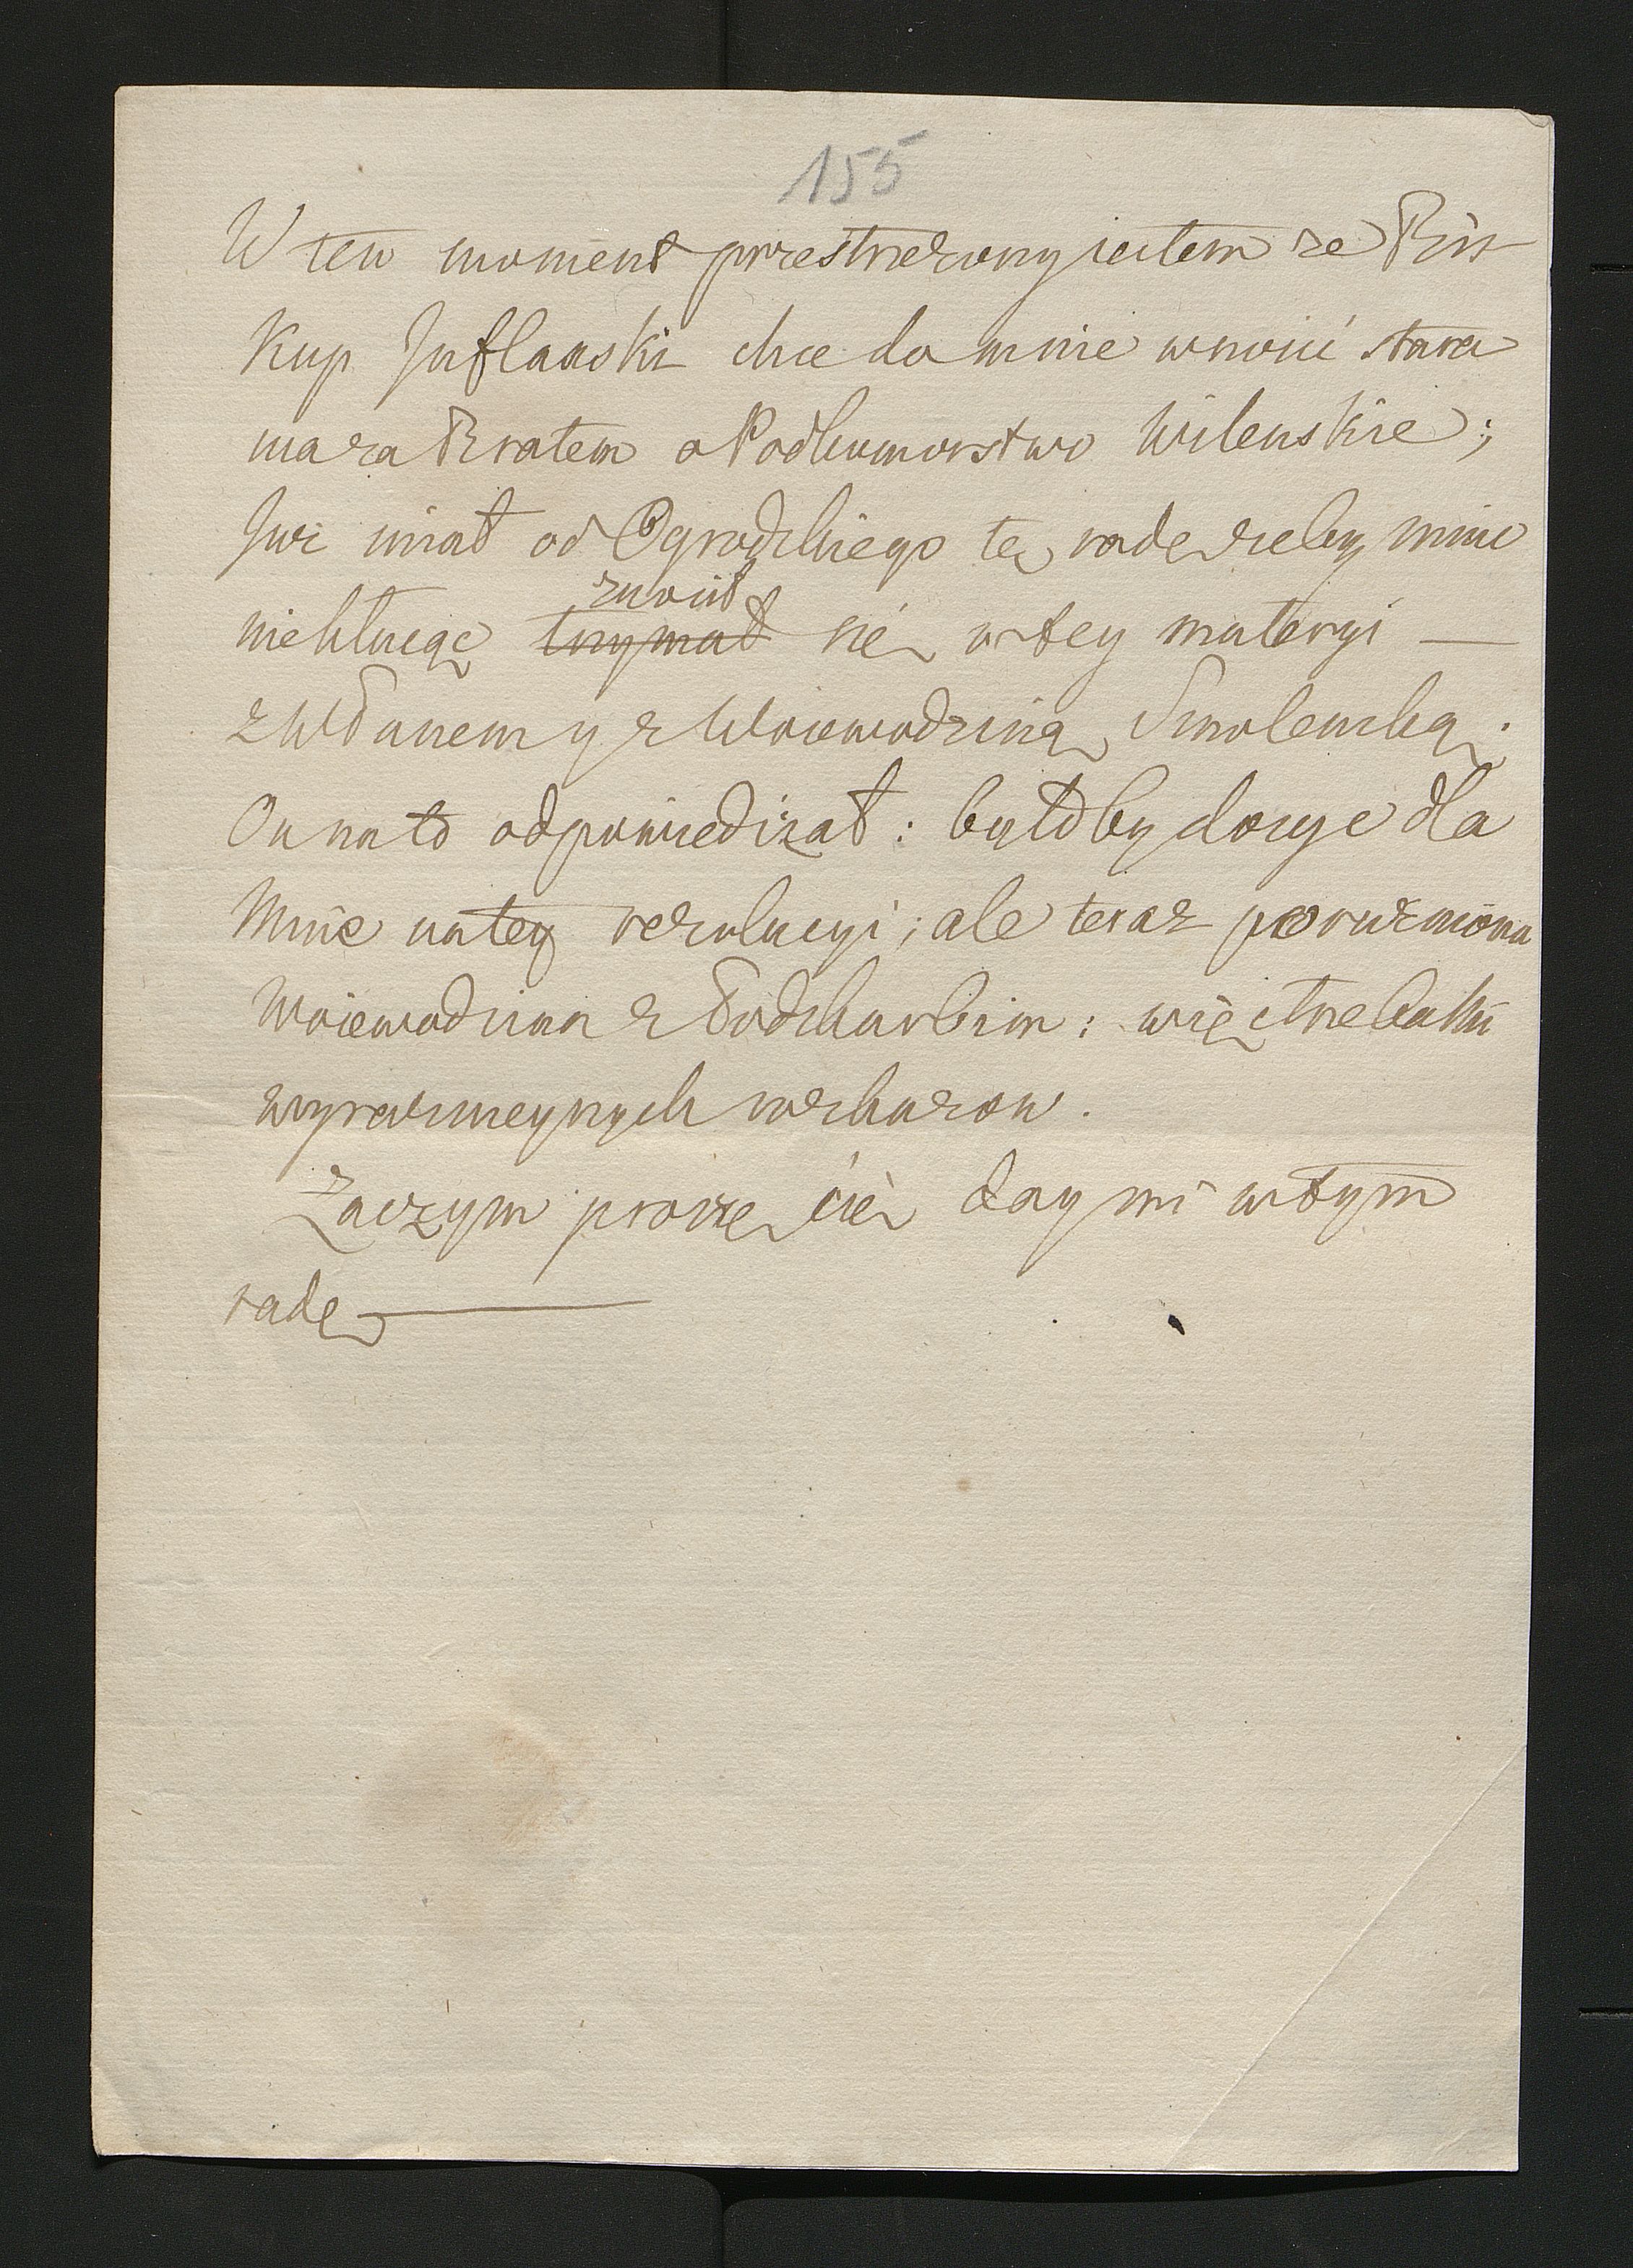 155
W ten moment przestrzezony iestem ze Bis
kup Inflanski chce do mnie wnosić stara
nia za Bratem o Podkomorstwo Wilenskie;
Juz miał od Ogrodzkiego tę radę zeby mnie
nie kłucąc znosił
trzymał się w tey materyi —
z Wdanem y z Woiewodziną Smolenską.
On na to odpowiedział: byłoby dosyc dla
Mnie na tey rezolucyi; ale teraz porozniona
Woiewodzina z Podskarbim: więc trzeba ku
wyraznieynych rozkazow.
Zaczym proszę cię day mi w tym
radę —